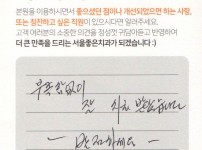 본원을 이용하시면서 좋으셨던 점이나 개선되었으면 하는 사항,
또는 칭찬하고 싶은 직원이 있으시다면 알려주세요.
고객 여러분의 소중한 의견을 정성껏 귀담아듣고 반영하여
더 큰 만족을 드리는 서울좋은치과가 되겠습니다 :)
부족함없이
잘 치료 받았습니다
감사하세요